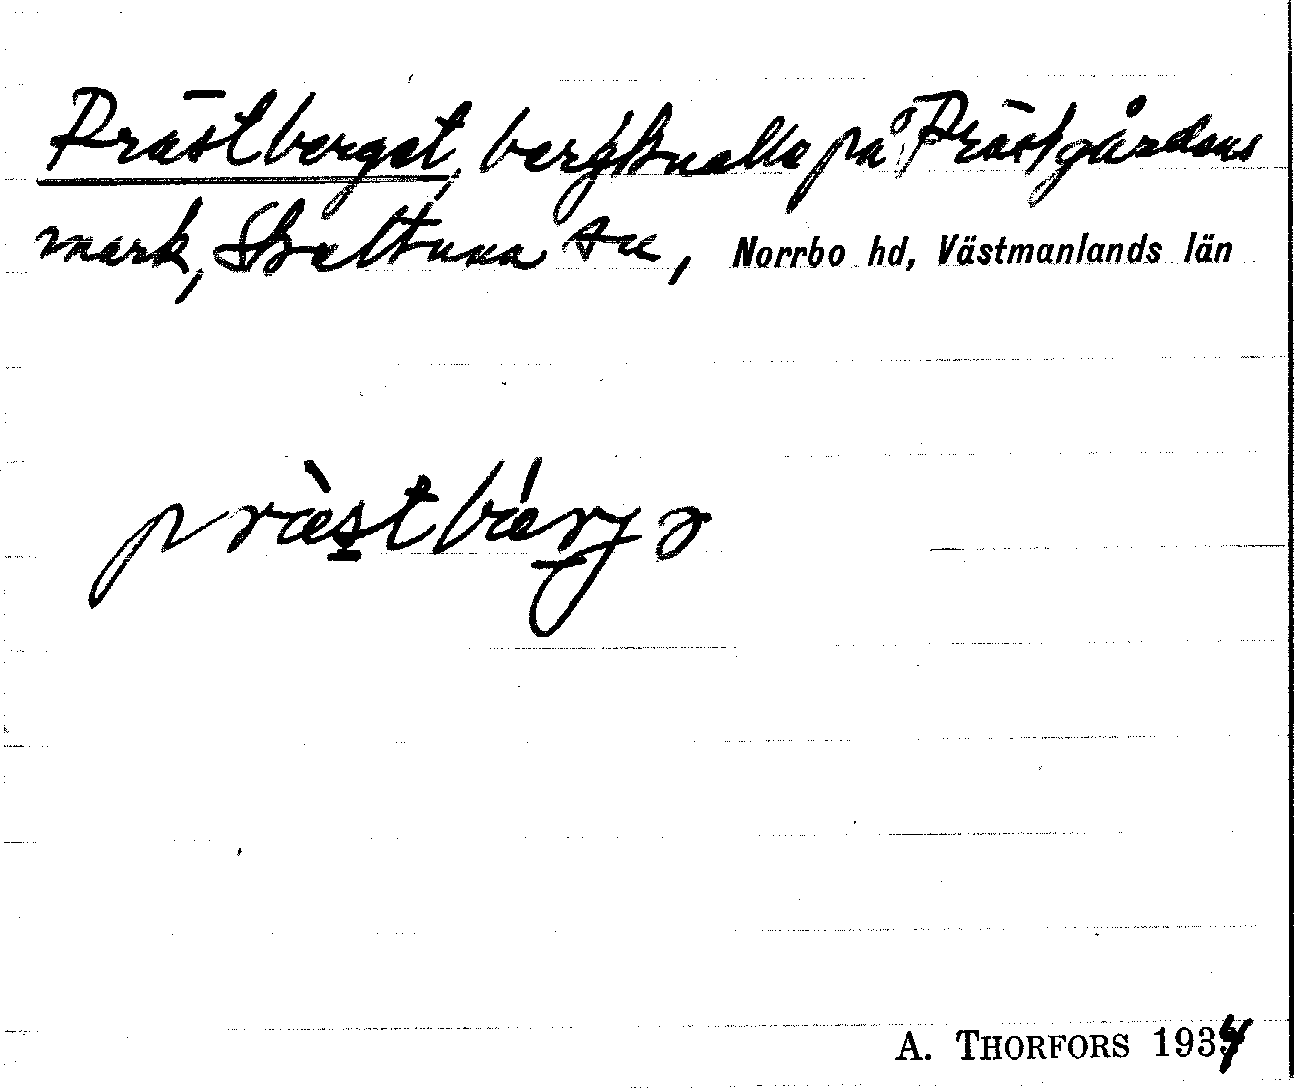 Prästberget, bergknalle på Prästgårdens
mark, Skultuna sn, Norrbo hd, Västmanlands län
præ̀stbǽrjə
A. THORFORS 1934